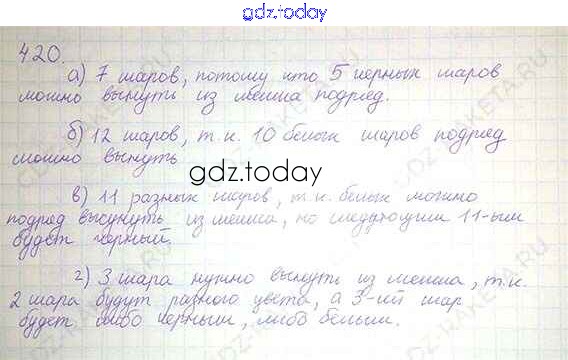 gdz.today
420.
а) 7 шаров, потому что 5 черных шаров
можно вынуть из мешка подряд.
б) 12 шаров, т.к. 10 белых шаров подряд
можно вынуть
gdz.today
в) 11 разных шаров, т.к. белых можно
подряд высунуть из мешка, но следующим 11-ым
будет черный.
г) 3 шара нужно вынуть из мешка, т.к.
2 шара будут разного цвета, а 3-ий шар
будет либо черным, либо белым.